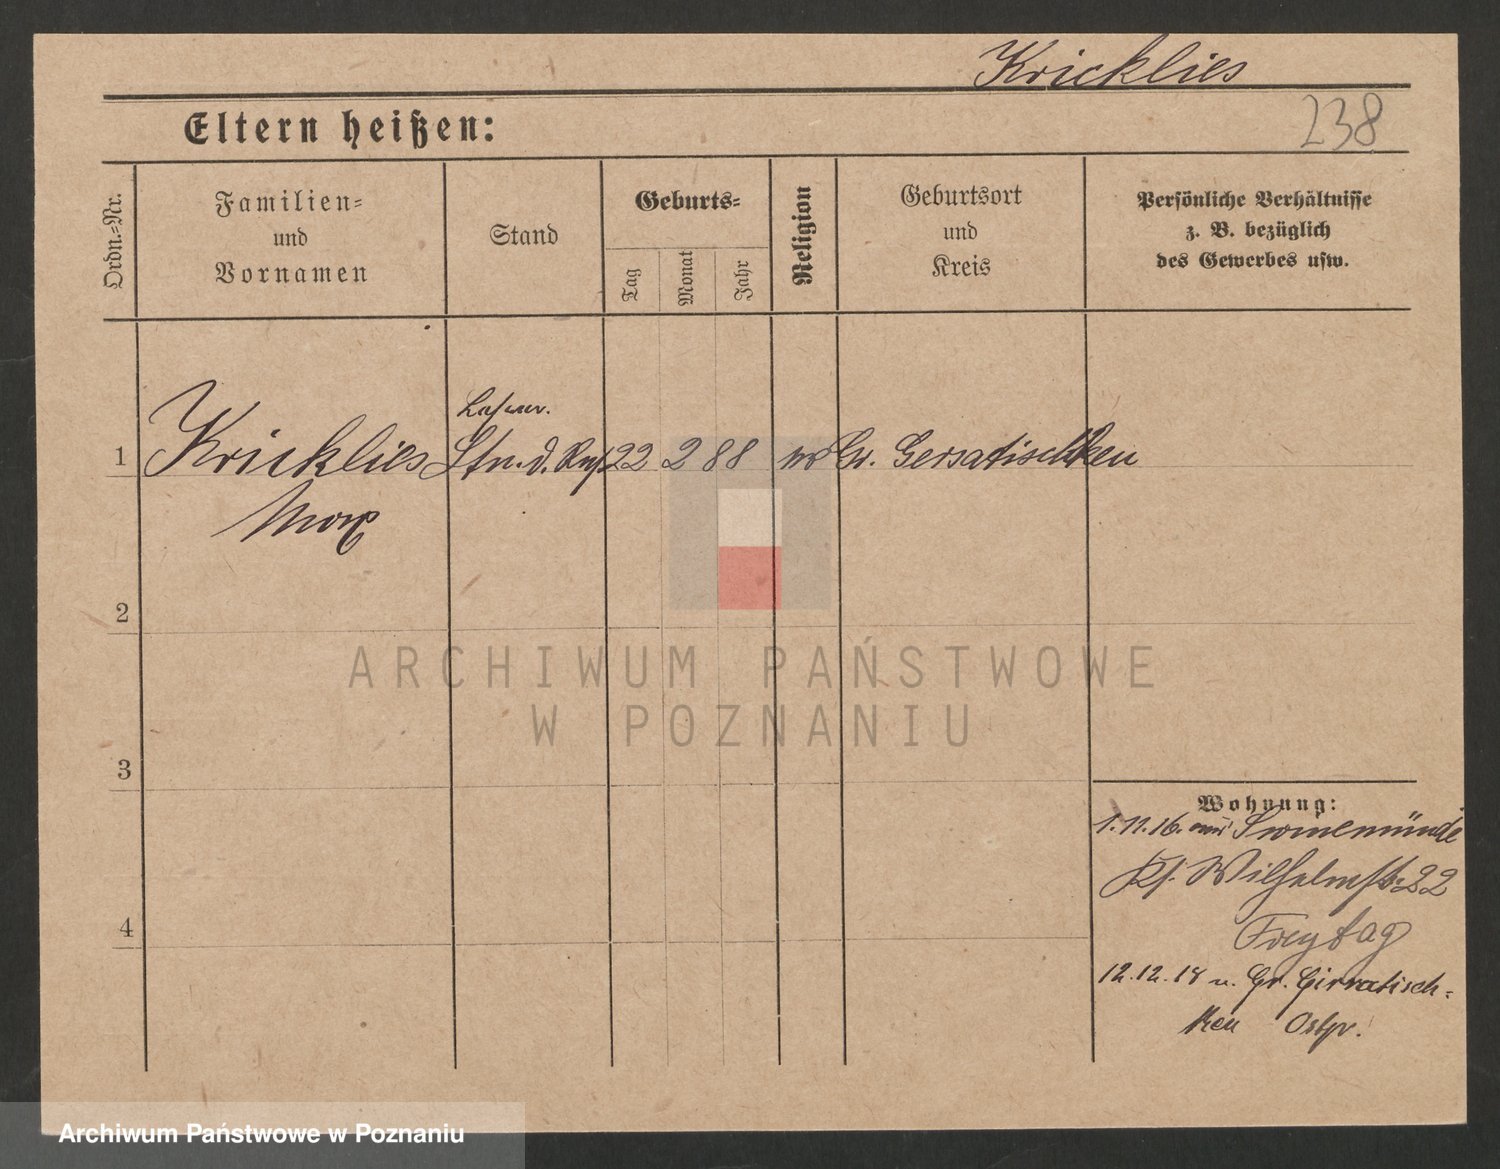 Kricklies
238
Eltern heißen:
Ordn.-Nr.
Familien-
und
Vornamen
Stand
Geburts-
Tag
Monat
Jahr
Religion
Geburtsort
und
Kreis
Persönliche Verhältnisse
z. B. bezüglich
des Gewerbes usw.
1 Kricklies Stn. d. Res. 22 2 88 Gr. Gersatischken
Max
2
3
4
ARCHIWUM PAŃSTWOWE
W POZNANIU
Wohnung:
1.11.16. Swinemünde
Kl. Wilhelmstr. 22
Freytag
12.12.18 n. Gr. Girratisch-
ken Ostpr.
Archiwum Państwowe w Poznaniu